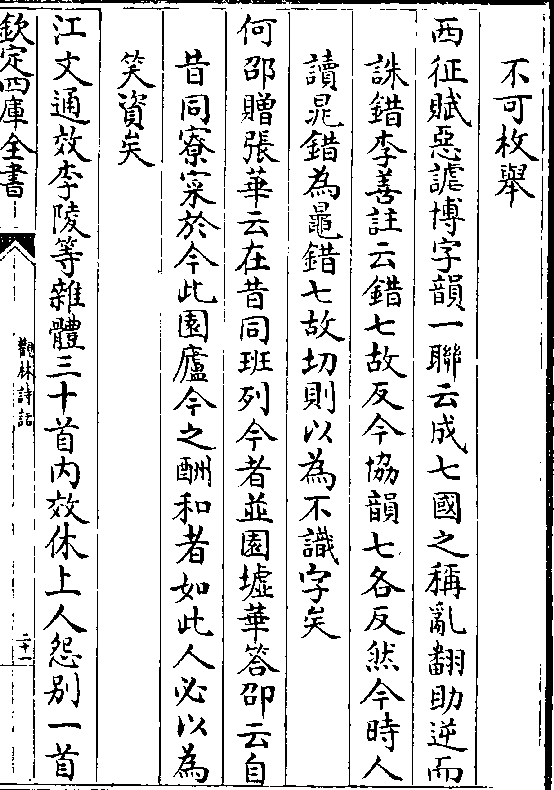 不可枚舉
西征賦惡謔博字韻一聯云成七國之稱亂翻助逆而
誅錯李善註云錯七故反今協韻七各反然今時人
讀晁錯為鼂錯七故切則以為不識字矣
何邵贈張華云在昔同班列今者並園墟華答邵云自
昔同寮寀於今此園廬今之酬和者如此人必以為
笑資矣
江文通效李陵等雜體三十首内效休上人怨别一首
欽定四庫全書
觀林詩話
二十一